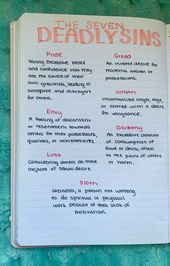 THE SEVEN
DEADLY SINS
Pride
Having excessive belief
and confidence that they
are the source of their
own greatness, leading to
arrogance and disregard
for others.
Envy
A feeling of discontent
or resentment towards
others for their possessions,
qualities, or achievements.
Lust
Considering others as mere
objects of sexual desire.
Greed
An unusual desire for
material wealth or
possessions.
Wrath
Uncontrolled anger, rage,
or hatred with a desire
for vengeance.
Gluttony
An excessive amount
of consumption of
food or drink, often
to the point of waste
or harm.
Sloth
Laziness, a person not wanting
to do spiritual or physical
work because of their lack of
motivation.